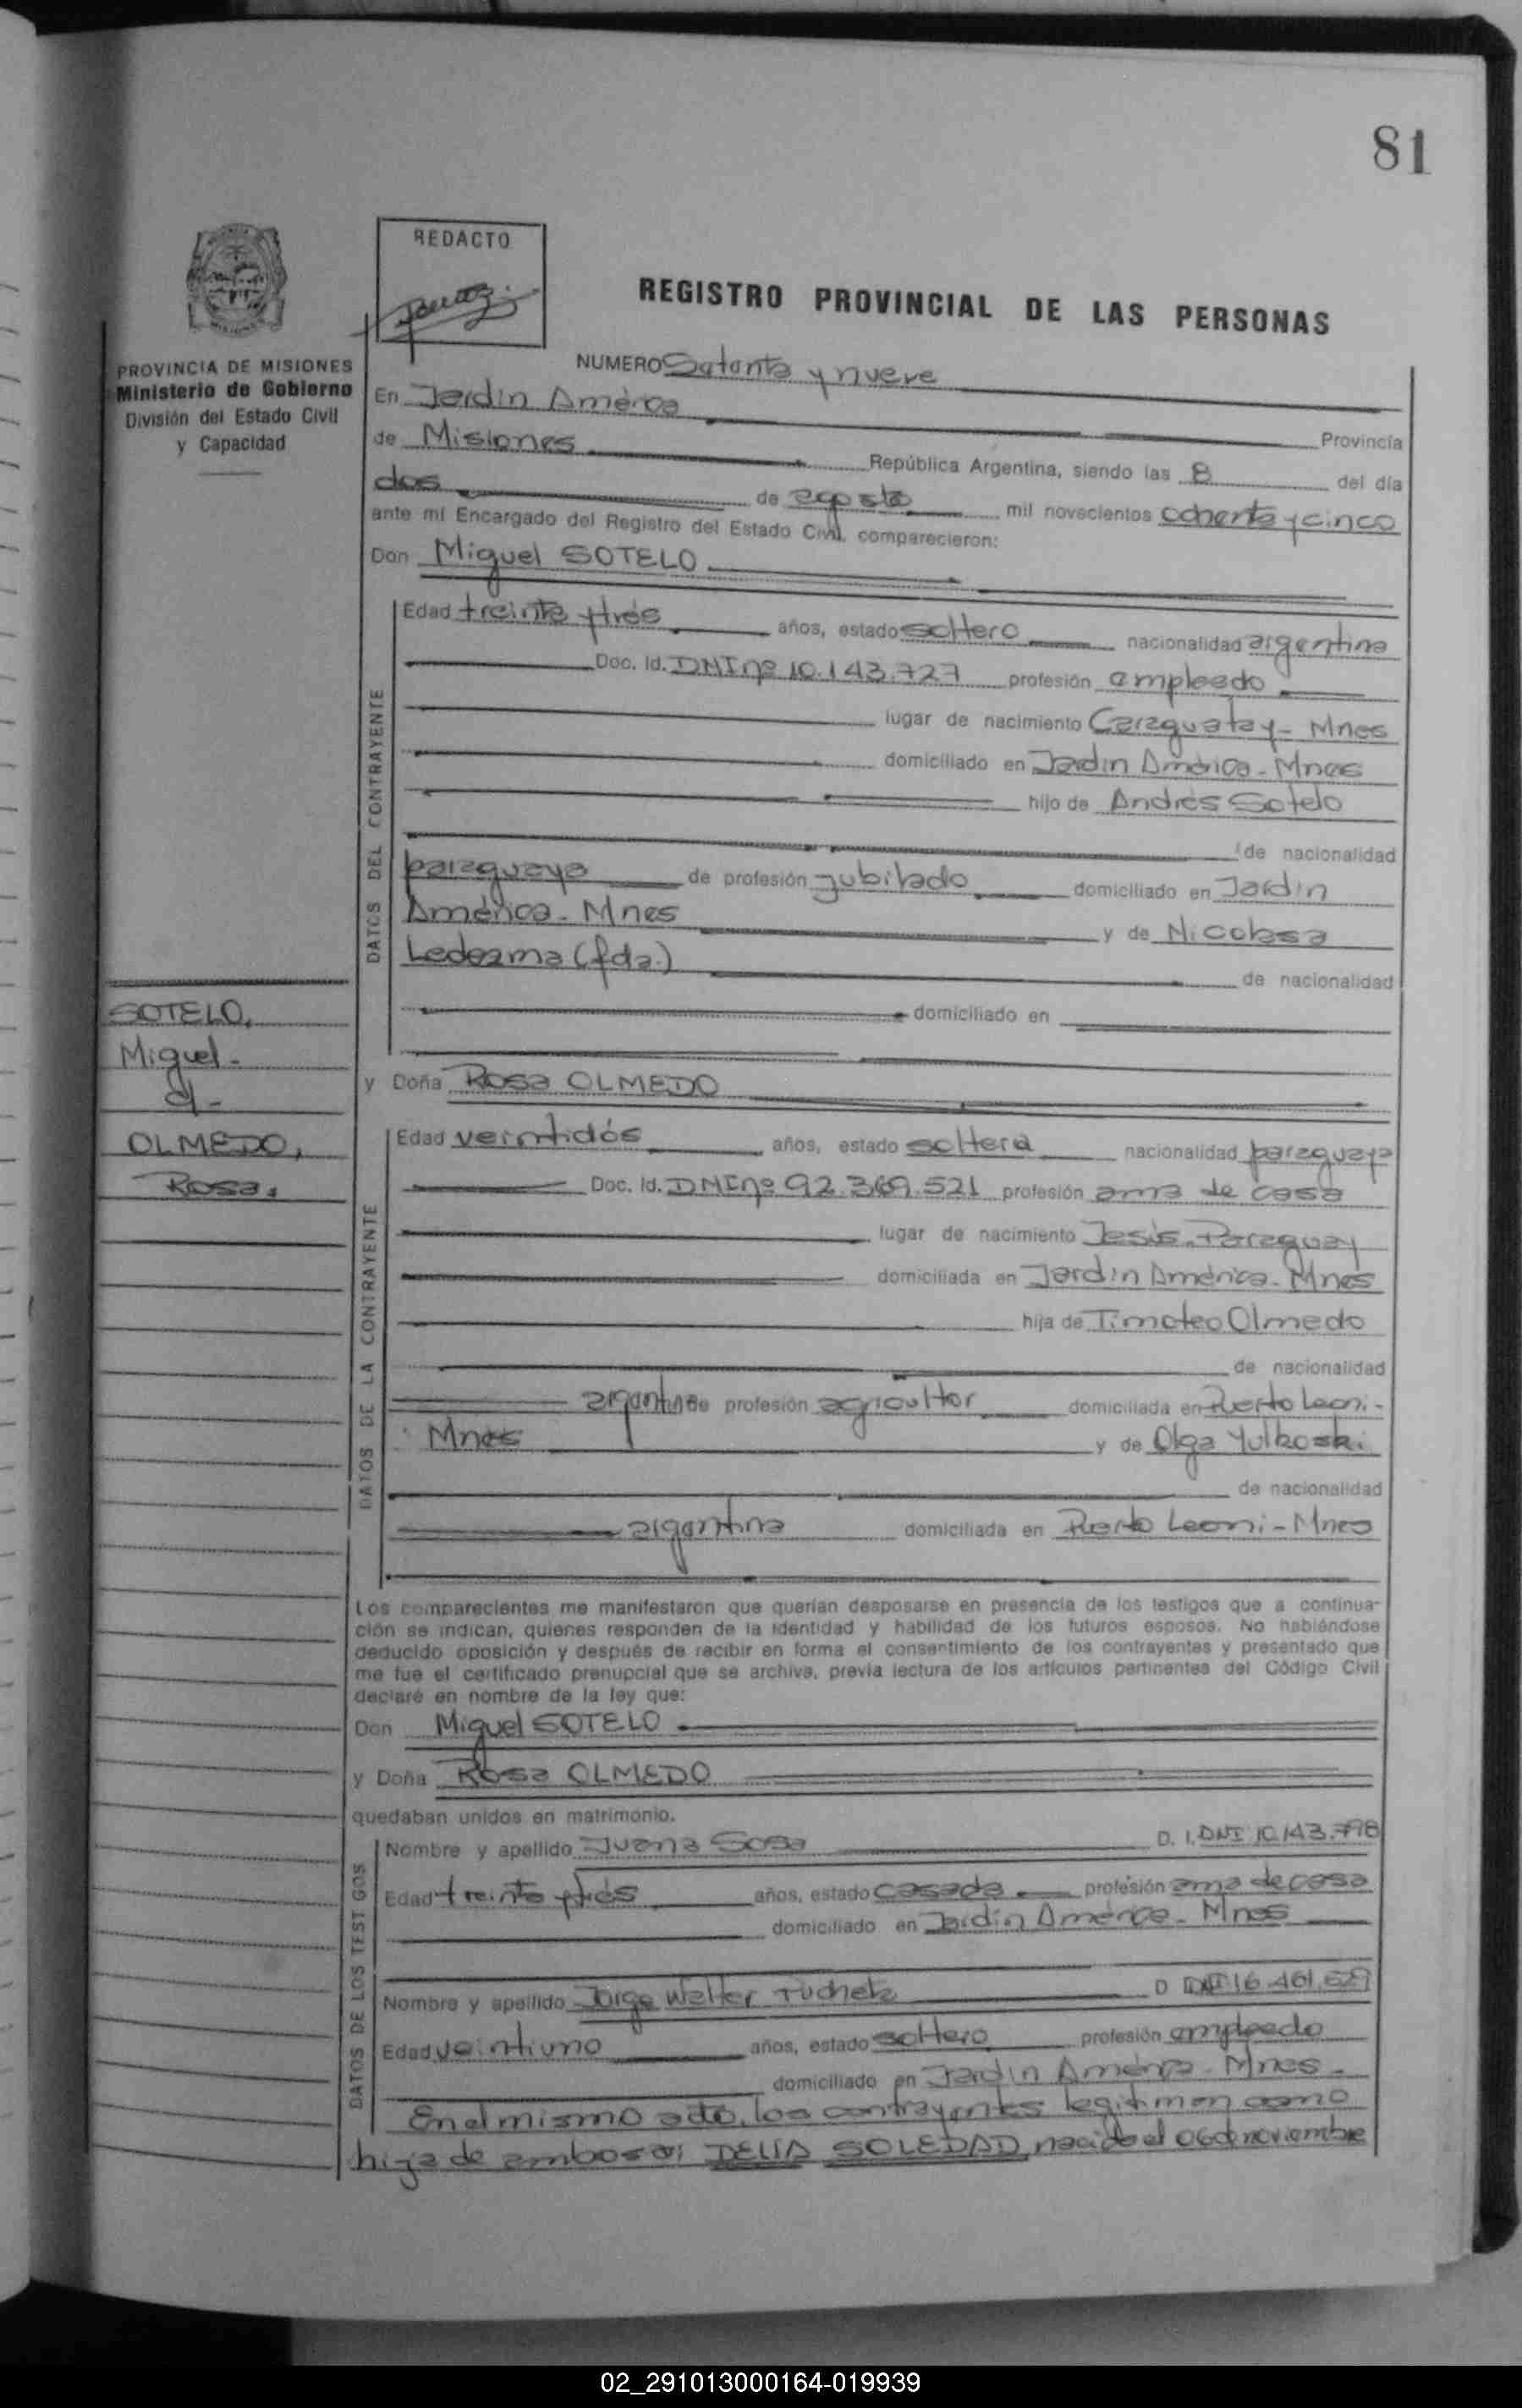 81
REDACTO
REGISTRO PROVINCIAL DE LAS PERSONAS
PROVINCIA DE MISIONES
Ministerio de Gobierno
División del Estado Civil
y Capacidad
NUMERO Setenta y nueve
En Jardín América Provincia
de Misiones República Argentina, siendo las 8 del día
dos de agosto mil novecientos ochenta y cinco
ante mí Encargado del Registro del Estado Civil, comparecieron:
Don Miguel SOTELO
DATOS DEL CONTRAYENTE
Edad treinta y tres años, estado soltero nacionalidad argentina
Doc. Id. DNI nº 10.143.727 profesión empleado
lugar de nacimiento Caraguatay - Mnes
domiciliado en Jardín América - Mnes
hijo de Andrés Sotelo
de nacionalidad
paraguaya de profesión jubilado domiciliado en Jardín
América - Mnes y de Nicolasa
Ledezma (fda.) de nacionalidad
domiciliado en
SOTELO,
Miguel -
c/-
OLMEDO,
Rosa.
y Doña Rosa OLMEDO
DATOS DE LA CONTRAYENTE
Edad veintidós años, estado soltera nacionalidad paraguaya
Doc. Id. DNI nº 92.369.521 profesión ama de casa
lugar de nacimiento Jesús - Paraguay
domiciliada en Jardín América - Mnes
hija de Timoteo Olmedo
de nacionalidad
argentina de profesión agricultor domiciliada en Puerto Leoni -
Mnes y de Olga Yulkoski
de nacionalidad
argentina domiciliada en Puerto Leoni - Mnes
Los comparecientes me manifestaron que querían desposarse en presencia de los testigos que a continua-
ción se indican, quienes responden de la identidad y habilidad de los futuros esposos. No habiéndose
deducido oposición y después de recibir en forma el consentimiento de los contrayentes y presentado que
me fue el certificado prenupcial que se archiva, previa lectura de los artículos pertinentes del Código Civil
declaré en nombre de la ley que:
Don Miguel SOTELO
y Doña Rosa OLMEDO
quedaban unidos en matrimonio.
DATOS DE LOS TESTIGOS
Nombre y apellido Juana Sosa D. I. DNI 10.143.798
Edad treinta y tres años, estado casada profesión ama de casa
domiciliado en Jardín América - Mnes
Nombre y apellido Jorge Walter D DNI 16.461.529
Edad veintiuno años, estado soltero profesión empleado
domiciliado en Jardín América - Mnes -
En el mismo acto, los contrayentes legitiman como
hija de ambos a: DELIA SOLEDAD, nacida el 06 de noviembre
02_291013000164-019939